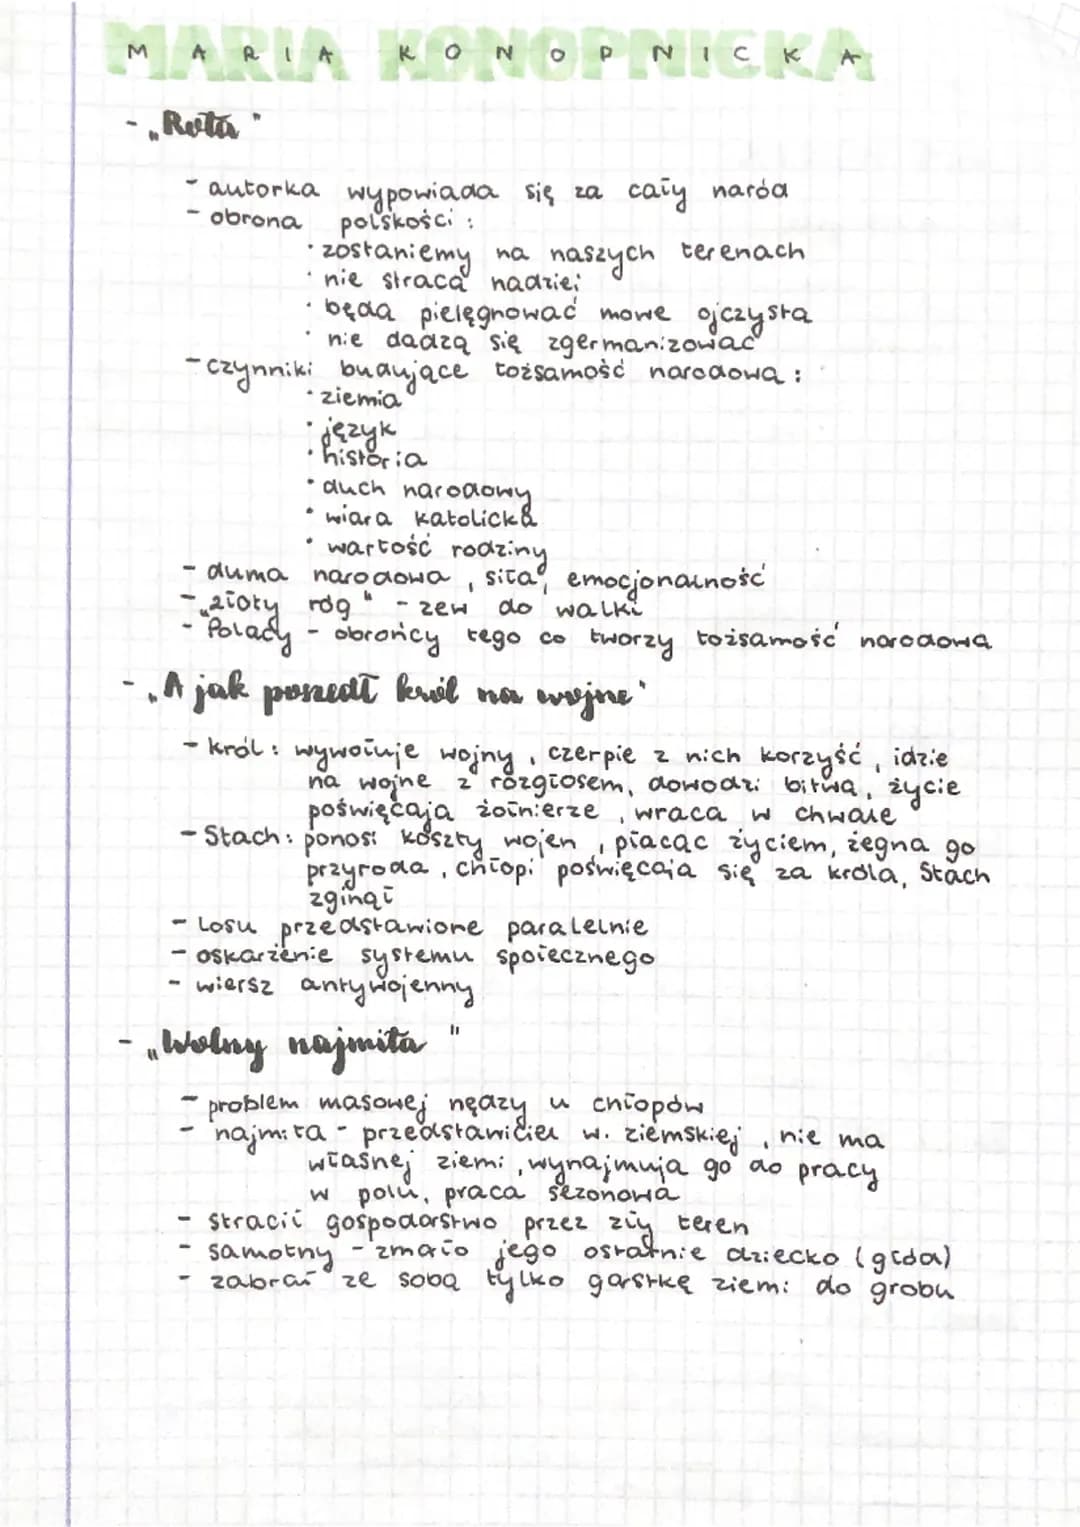 MARIA KONOPNICKA
- „Rota"
- autorka wypowiada się za cały naród
- obrona polskości :
· zostaniemy na naszych terenach
· nie stracą nadziei
· będą pielęgnować mowę ojczystą
· nie dadzą się zgermanizować
- czynniki budujące tożsamość narodową :
· ziemia
· język
· historia
· duch narodowy
· wiara katolicka
· wartość rodziny
- duma narodowa , siła , emocjonalność
- „złoty róg" - zew do walki
- Polacy - obrońcy tego co tworzy tożsamość narodową
- „A jak poszedł król na wojnę"
- król : wywołuje wojny , czerpie z nich korzyść , idzie
na wojnę z rozgłosem, dowodzi bitwą, życie
poświęcają żołnierze , wraca w chwale
- Stach : ponosi koszty wojen , płacąc życiem, żegna go
przyroda , chłopi poświęcają się za króla, Stach
zginął
- Losu przedstawione paralelnie
- oskarżenie systemu społecznego
- wiersz antywojenny
- „Wolny najmita "
- problem masowej nędzy u chłopów
- najmita - przedstawiciel w. ziemskiej , nie ma
własnej ziemi , wynajmują go do pracy
w polu, praca sezonowa
- stracił gospodarstwo przez zły teren
- samotny - zmarło jego ostatnie dziecko (głód)
- zabrał ze sobą tylko garstkę ziemi do grobu